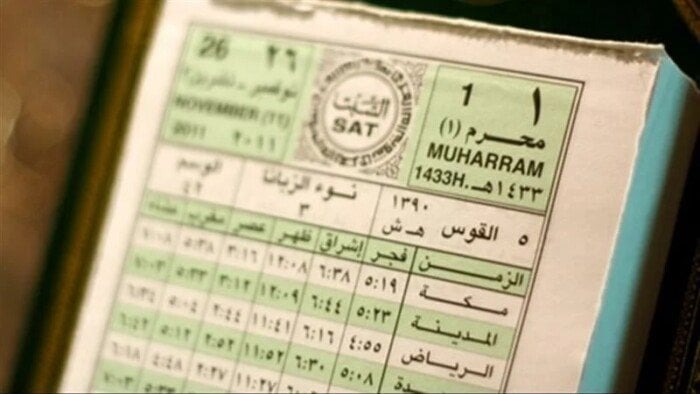 1 ١
محرم (١)
MUHARRAM
1433H. ١٤٣٣هـ
السبت
SAT
26 ٢٦
نوفمبر - تشرين٢
NOVEMBER (11)
2011 ٢٠١١
٥ القوس ١٣٩٠ هـ ش
نوء الزبانا
٣
الوسم
٤٢
الزمن فجر إشراق ظهر عصر مغرب عشاء
مكة ٥:١٩ ٦:٣٨ ١٢:٠٨ ٣:١٦ ٥:٣٨ ٧:٠٨
المدينة ٥:٢٣ ٦:٤٤ ١٢:٠٩ ٣:١٢ ٥:٣٣ ٧:٠٣
الرياض ٤:٥٥ ٦:١٦ ١١:٤١ ٢:٤٤ ٥:٠٤ ٦:٣٤
٥:٠٨ ٦:٣٠ ١١:٥٢ ٢:٥٢ ٥:١٢ ٦:٤٢
١١:٢٧ ٤:٤٨ ٦:١٨
٥:٣٣ ٧:٠٣